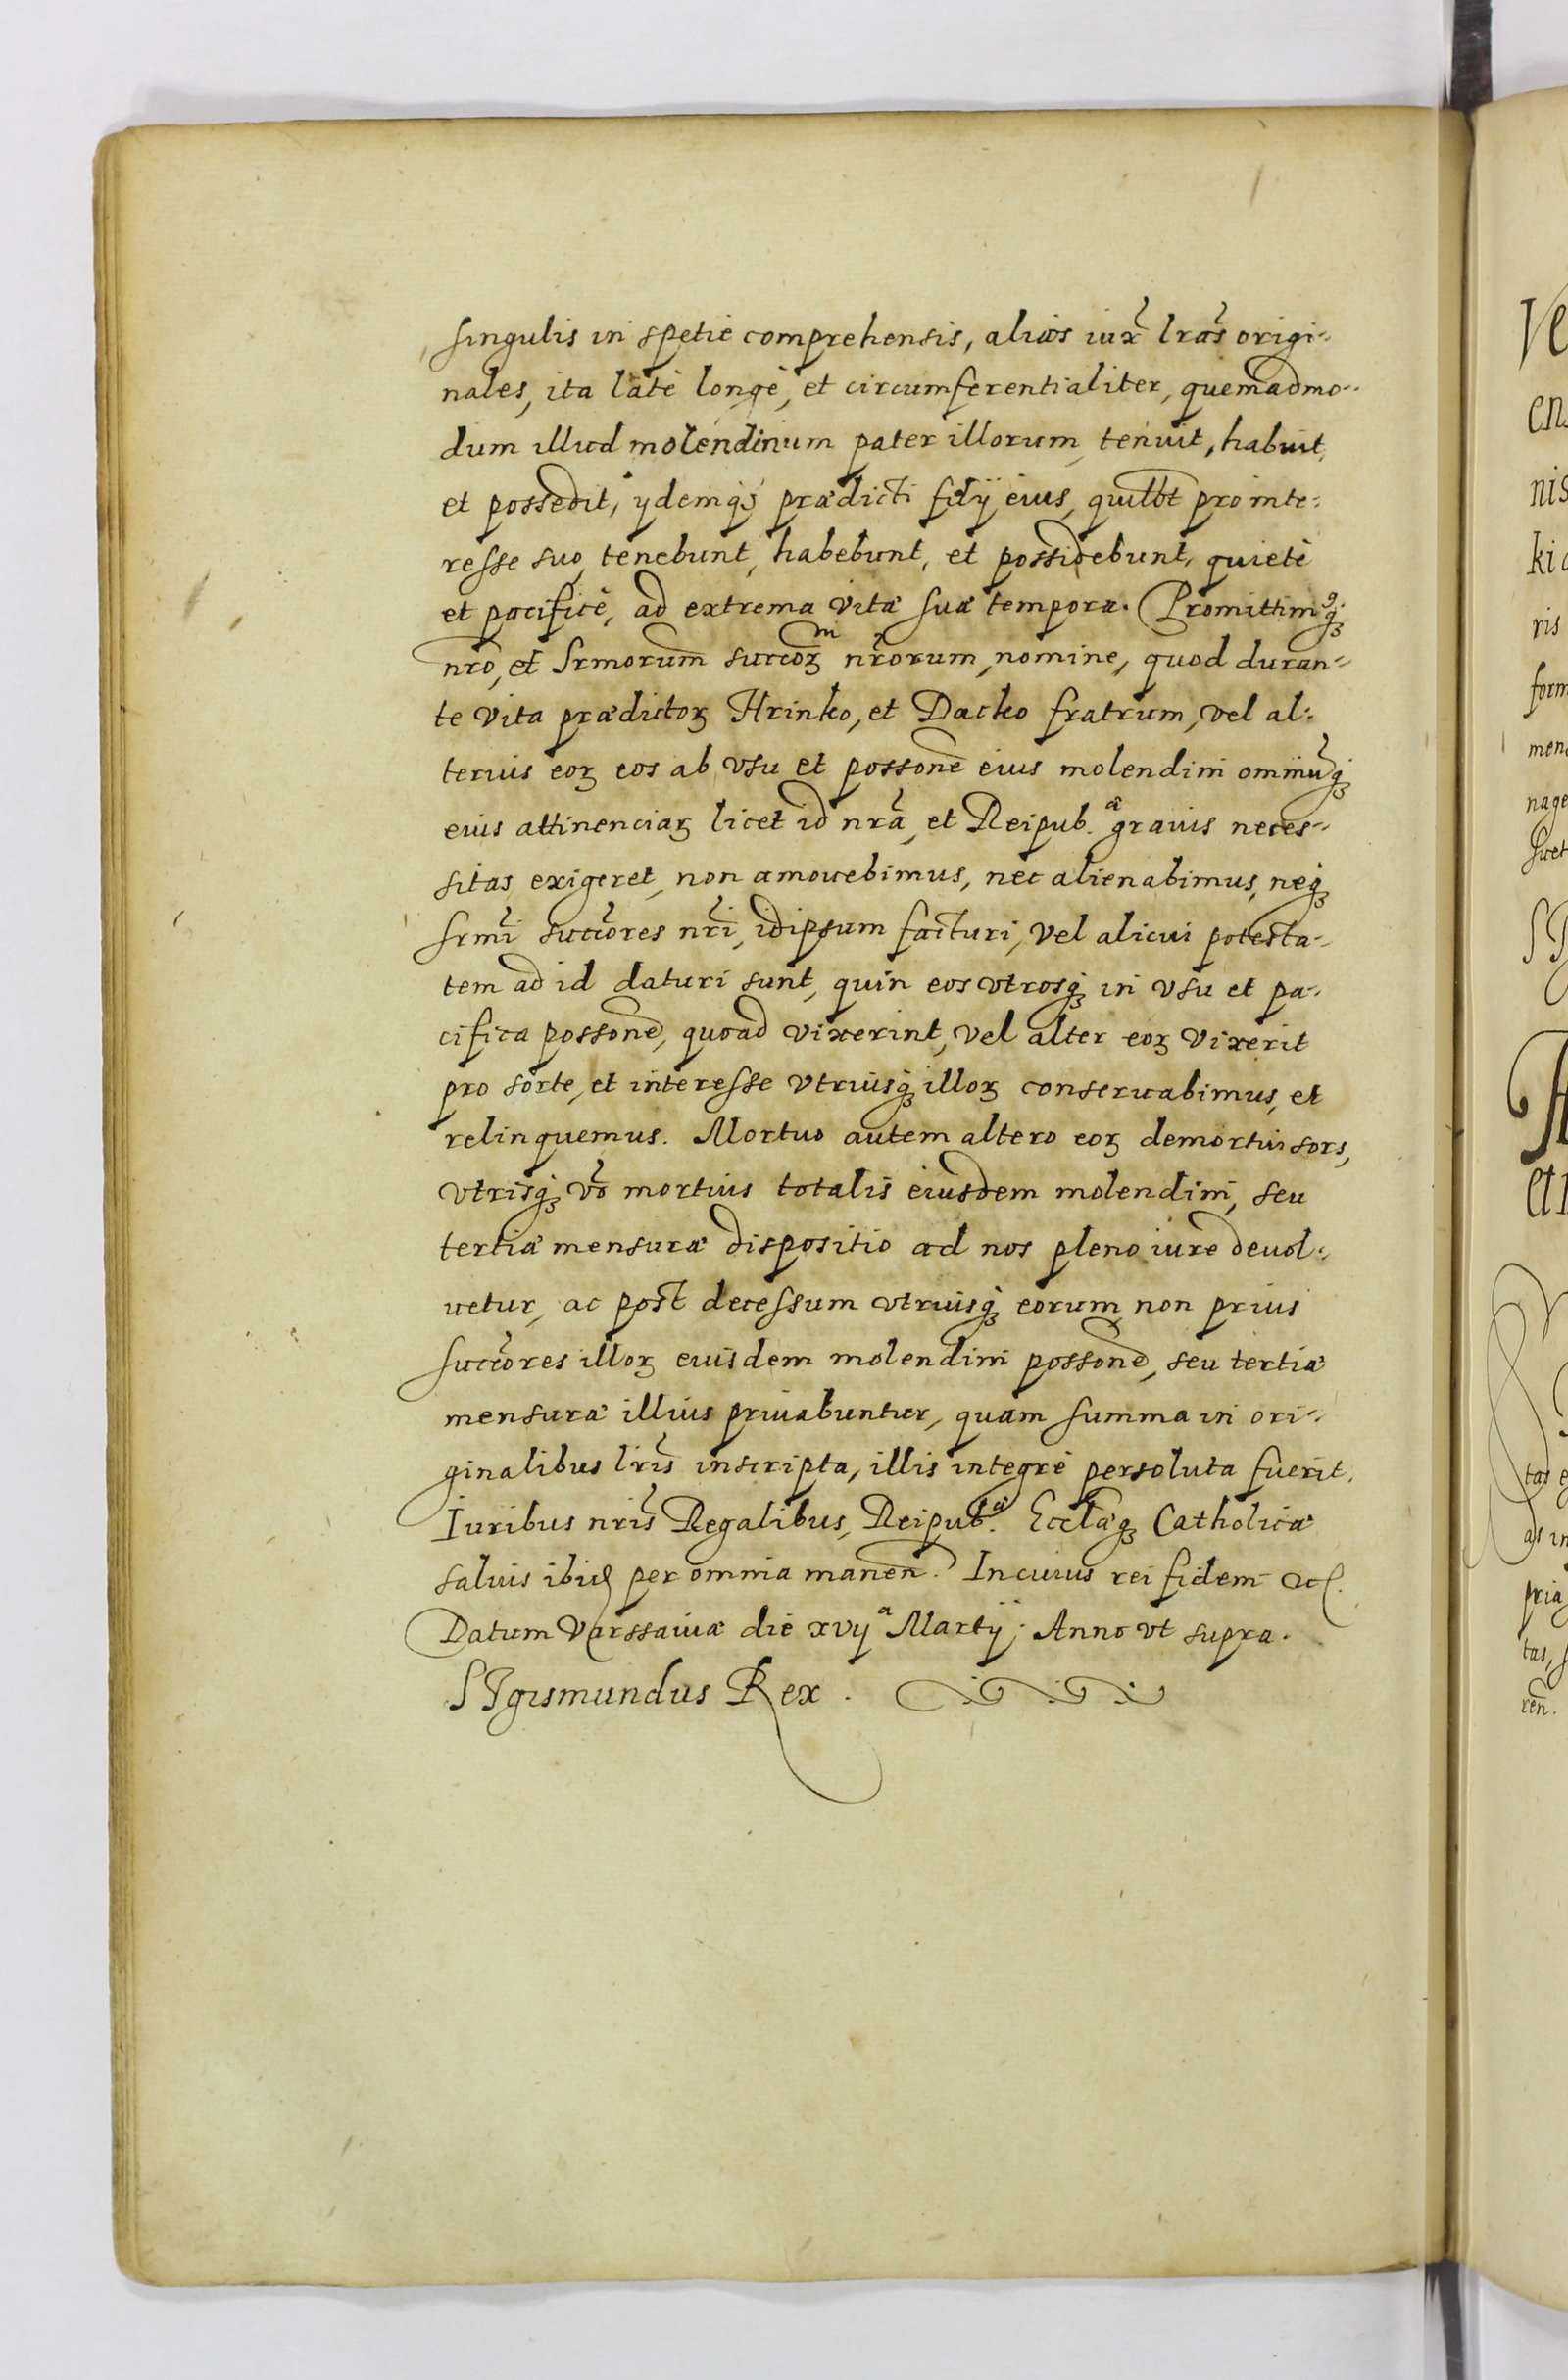 singulis in spetie comprehensis, alias iux̃ lr̃as origi-
nales, ita latè longè, et circumferentialiter, quemadmo-
dum illud molendinum pater illorum tenuit, habuit,
et possedit, ydemq́ꝫ prædicti filÿ eius, quilb̃t pro inte-
resse suo tenebunt, habebunt, et possidebunt, quietè
et pacificè, ad extrema vitæ suæ tempora. Promittimꝰq́ꝫ
nr̃o, et Srmorum̃ succoꝝᵐ nr̃orum, nomine, quod duran-
te vita prædictoꝝ Hrinko, et Dacko fratrum, vel al-
terius eoꝝ eos ab vsu et possonẽ eius molendini omniũq́ꝫ
eius attinenciaꝝ licet id nr̃a, et Reipub.ᵃ grauis neces-
sitas exigeret, non amouebimus, nec alienabimus, neq́ꝫ
Srmĩ succõres nr̃i, idipsum facturi, vel alicui potesta-
tem ad id daturi sunt, quin eos vtrosq́ꝫ in vsu et pa-
cifica possonẽ, quoad vixerint, vel alter eoꝝ vixerit
pro sorte, et interesse vtriusq́ꝫ illoꝝ conseruabimus, et
relinquemus. Mortuo autem altero eoꝝ demortui sors,
vtrisq́ꝫ võ mortuis totalis eiusdem molendini, seu
tertiæ mensuræ dispositio ad nos pleno iure deuol-
uetur, ac post decessum vtriusq́ꝫ eorum non prius
succõres illoꝝ eiusdem molendini possonẽ, seu tertiæ
mensuræ illius priuabuntur, quam summa in ori-
ginalibus lr̃is inscripta, illis integrè persoluta fuerit.
Iuribus nr̃is Regalibus, Reipub.ᵃ Ecclãeq́ꝫ Catholicæ
saluis ibiḍ per omnia manen̄. In cuius rei fidem etc.
Datum Varssauiæ die xvijᵃ Martÿ. Anno vt supra.
SIgismundus Rex.